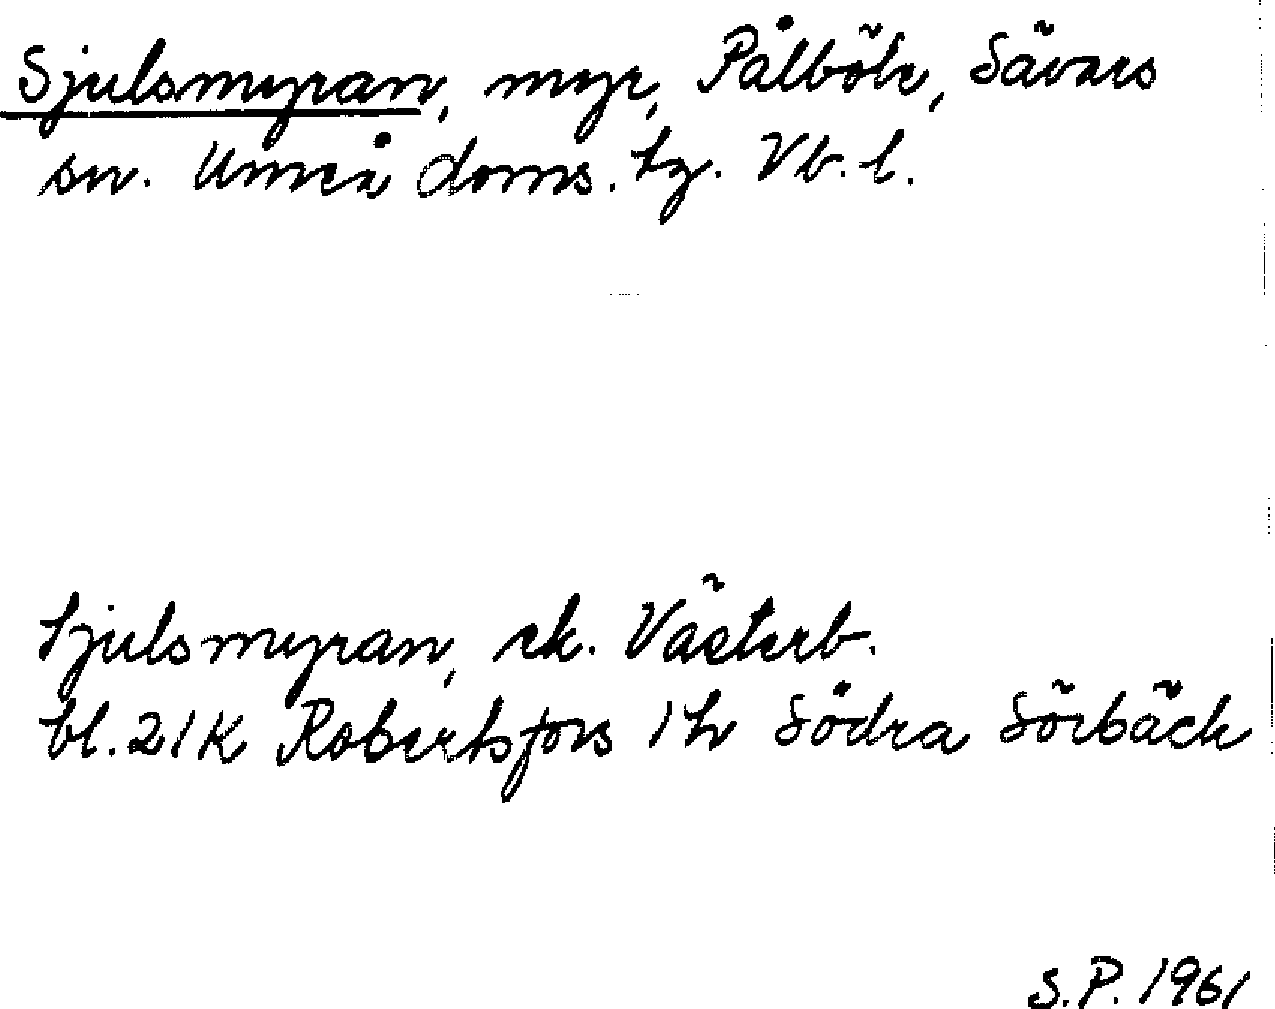 Sjulsmyran, myr, Pålböle, Sävars
sn. Umeå doms. tg. Vb. l.
Sjulsmyran, ek. Västerb.
bl. 21K Robertsfors 1h Södra Sörbäck
S.P. 1961